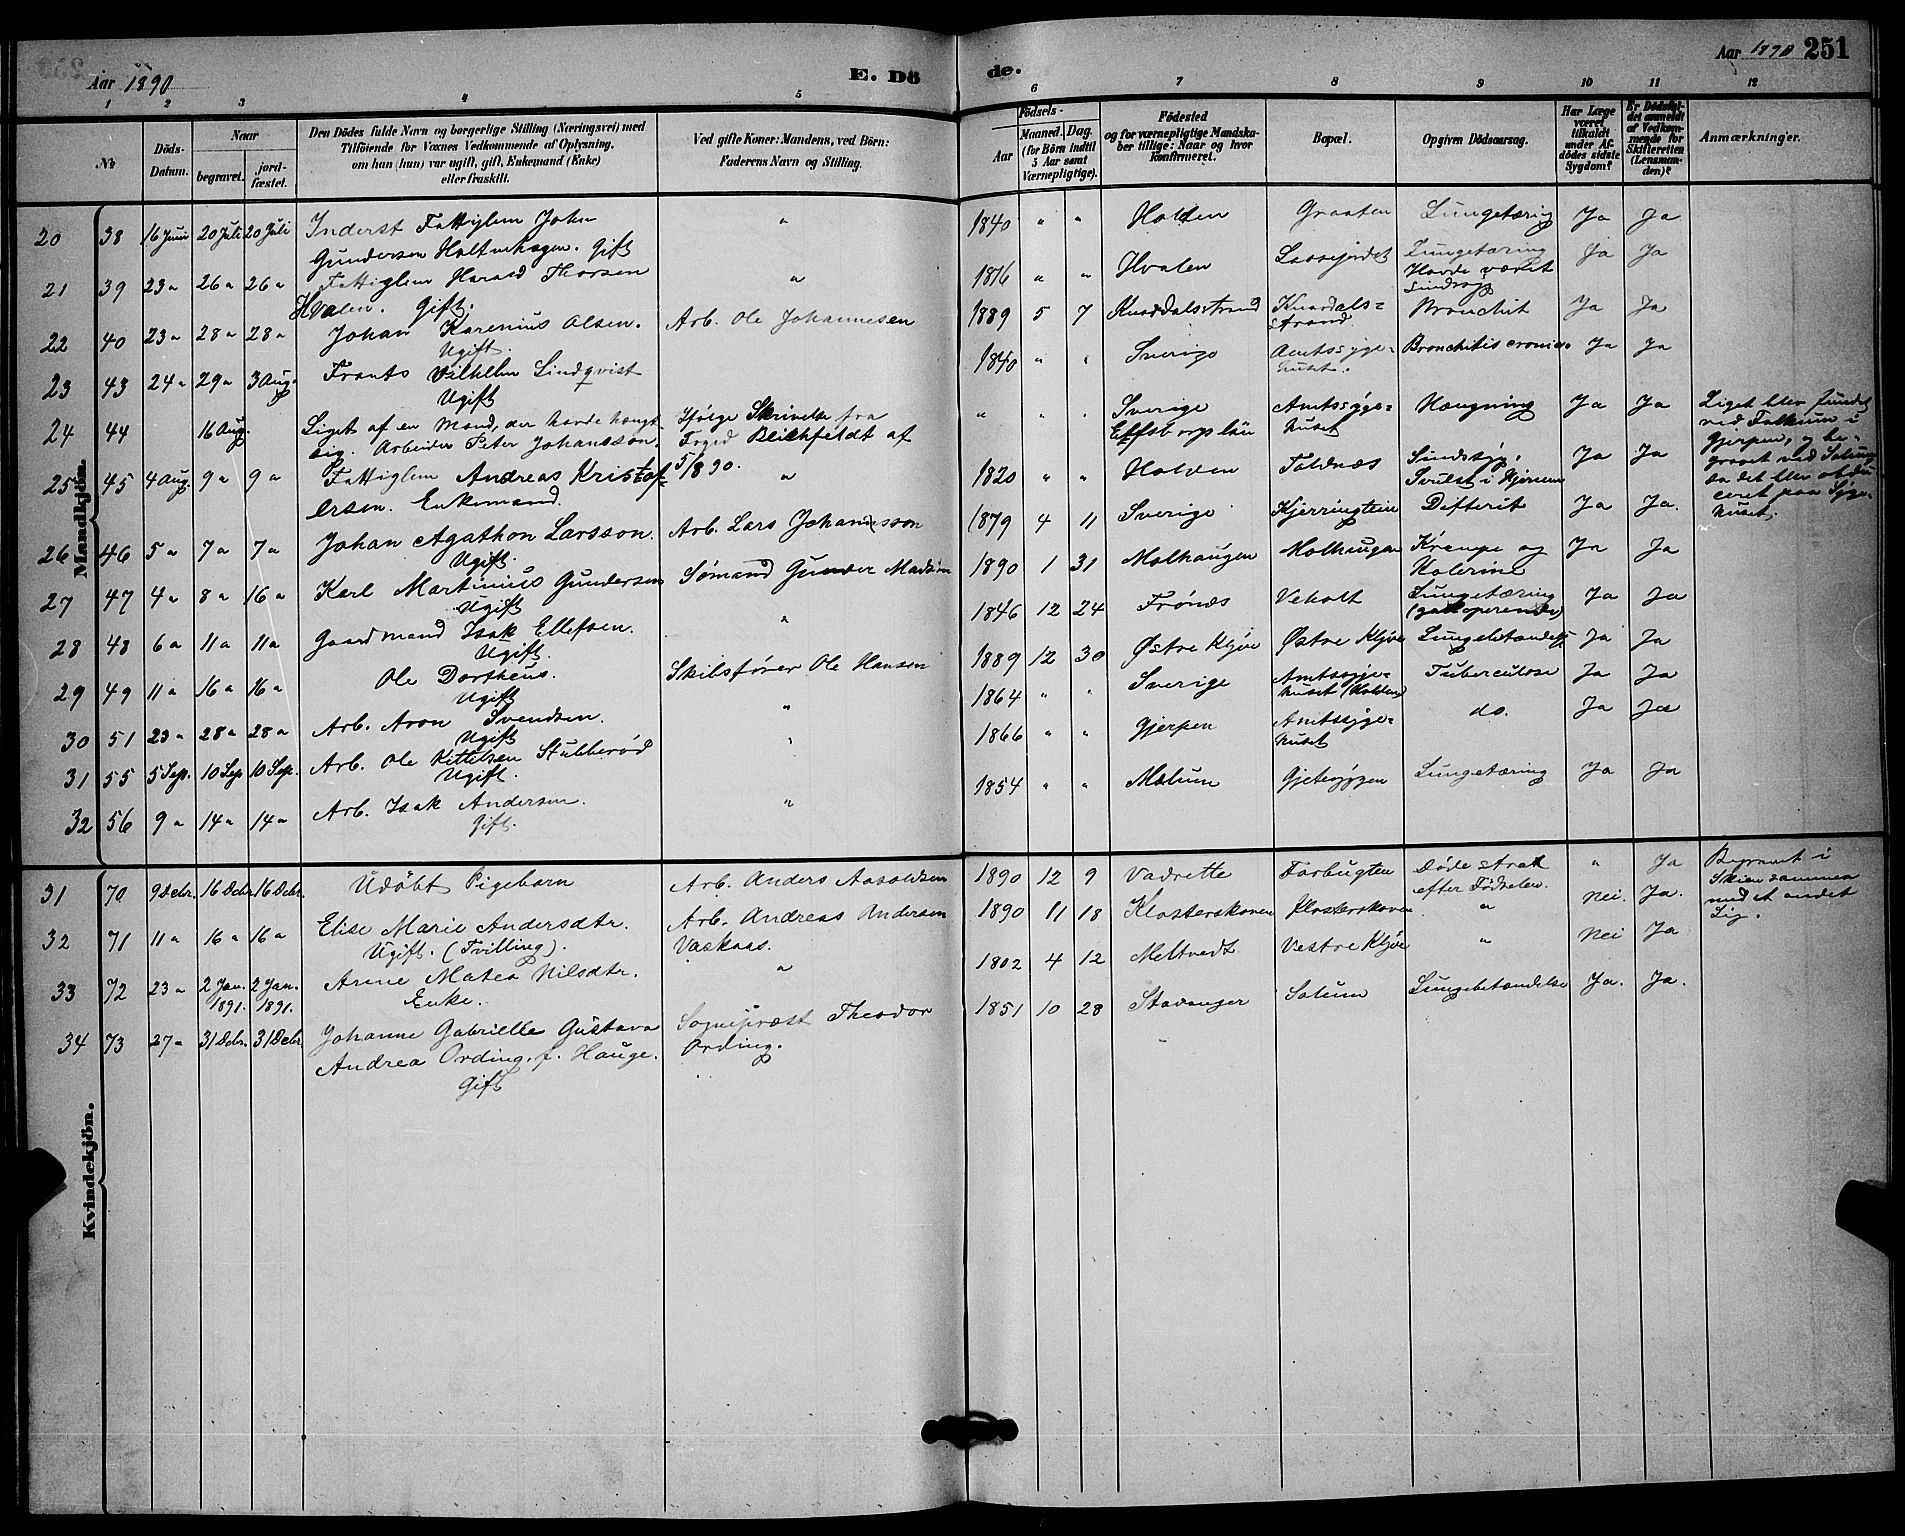 Aar 1890
E. Dö
de.
Aar 1890
251
1 2 3 4 5 6 7 8 9 10 11 12
№
Döds-Datum.
Naar
begravet.
jord-fæstet.
Den Dödes fulde Navn og borgerlige Stilling (Næringsvei) med
Tilföiende for Voxnes Vedkommende af Oplysning,
om han (hun) var ugift, gift, Enkemand (Enke)
eller fraskilt.
Ved gifte Koner: Mandens, ved Börn:
Faderens Navn og Stilling.
Födsels-
Aar
Maaned. Dag.
(for Börn indtil
5 Aar samt
Værnepligtige).
Födested
og for værnepligtige Mandska-
ber tillige: Naar og hvor
konfirmeret.
Bopæl.
Opgiven Dödsaarsag.
Har Læge
været
tilkaldt
under Af-
dödes sidste
Sygdom?
Er Dödsfal-
det anmeldt
af Vedkom-
mende for
Skifteretten
(Lensman-
den)?
Anmærkninger.
Mandkjön.
20 38 16 Juni 20 Juli 20 Juli Inderst Fattiglem John " 1840 " " Holden Graaten Lungetæring Ja Ja
Gundersen Holtmhagen. Gift
21 39 23 " 26 " 26 " Fattiglem Harald Thorsen " 1816 " " Hvalen Lungetæring Ja Ja
Hvalen. Gift. Havde været
22 40 23 " 28 " 28 " Johan Karenius Olsen. Arb. Ole Johannesen 1889 5 7 Knarddalsstrand Knardals= Bronchit Ja Ja
Ugift. strand
23 43 24 " 29 " 3 Aug. Frants Vilhelm Lindqvist 1840 " " Sverige Amtssyge- Bronchitis cronica Ja Ja
Ugift huset.
24 44 16 Aug. Liget af en Mand, der havde hængt Ifølge Skrivelse fra " " " Sverige Amtssyge- Hængning Ja Ja Liget blev fundet
sig. Arbeider Peter Johansson. Foged Bleichfeldt af Elfsborgs län huset ved Falkum i
5/8 90. Gjerpen, og be-
25 45 4 Aug. 9 " 9 " Fattiglem Andreas Kristof- " 1820 " " Holden Foldnæs Sindssyg, Ja Ja gravet ved Solum
ersen. Enkemand. Svulst i Hjernen da det blev obdu-
26 46 5 " 7 " 7 " Johan Agathon Larsson. Arb. Lars Johansson 1879 4 11 Sverige Kjerringtein Difterit Ja Ja. ceret paa Syge-
Ugift. huset.
27 47 4 " 8 " 16 " Karl Martinius Gundersen Sømand Gunder Madsen 1890 1 31 Molhaugen Molhaugen Krampe og Ja Ja
Ugift Kolerine
28 48 6 " 11 " 11 " Gaardmand Isak Ellefsen. " 1846 12 24 Frønæs Veholt Lungetæring Ja Ja
Ugift. (galoperende)
29 49 11 " 16 " 16 " Ole Dortheus. Skibsfører Ole Hansen 1889 12 30 Østre Kljve Østre Kljve Lungebetændels Ja Ja
Ugift
30 51 23 " 28 " 28 " Arb. Aron Svendsen. " 1864 " " Sverige Amtssyge- Tuberculose Ja Ja
Ugift huset (Holden)
31 55 5 Sep. 10 Sep 10 Sep. Arb. Ole Kittilsen Stubberød " 1866 " " Gjerpen Amtssyge- do. Ja Ja
Ugift. huset
32 56 9 " 14 " 14 " Arb. Isak Andersen. " 1854 " " Mælum Gjeteryggen Lungetæring Ja Ja
Gift.
Kvindekjön.
31 70 9 Debr. 16 Debr. 16 Debr. Udøbt Pigebarn Arb. Anders Aasoldsen 1890 12 9 Vadrette Forbugten Døde strak " Ja Begravet i
efter Fødselen. Skien sammen
32 71 11 " 16 " 16 " Elise Marie Andersdtr. Arb. Andreas Andersen 1890 11 18 Klosterskoven Klosterskoven " Nei. Ja. med et andet
Ugift. (Tvilling). Vaskaas. Lig.
33 72 23 " 2 Jan. 1891. 2 Jan. 1891. Anne Matea Nilsdtr. " 1802 4 12 Meltvedt Vestre Kljve " Nei Ja
Enke.
34 73 27 " 31 Debr. 31 Debr. Johanne Gabrielle Gustava Sogneprest Theodor 1851 10 28 Stavanger Solum Lungebetændelse Ja. Ja.
Andrea Ording. f. Hauge. Ording.
Gift